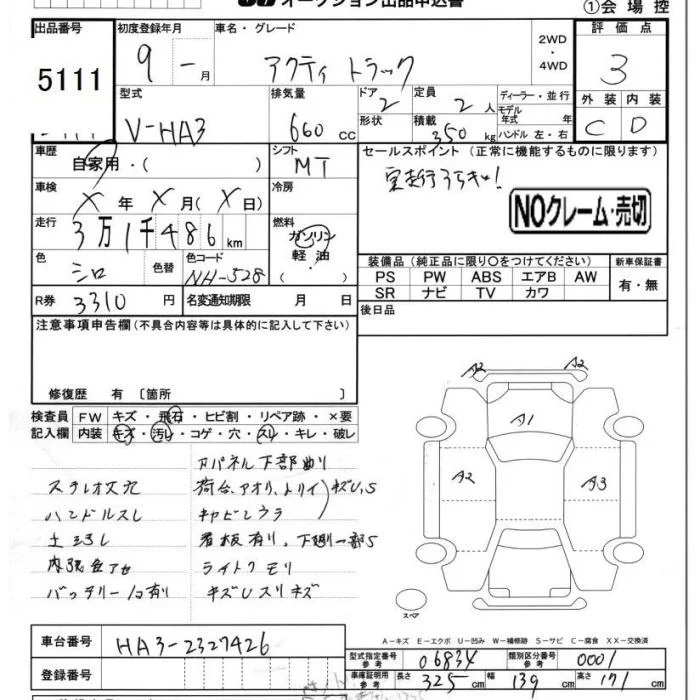 オークション出品申込書
①会場控
出品番号 初度登録年月 車名・グレード 評価点
5111 9 一 月 アクティ トラック 2WD ・ 4WD 3
型式 排気量 ドア 定員 ディーラー・並行 外装 内装
V-HA3 660 cc 2 2 人 モデル年式 年 C D
形状 積載 350 kg ハンドル 左・右
車歴 シフト セールスポイント (正常に機能するものに限ります)
自家用・( ) MT 実走行
車検 冷房
X 年 X 月(X 日) NOクレーム・売切
走行 燃料
3万1千486km ガソリン
軽油
( )
色 色替 色コード 装備品(純正品に限り○をつけてください) 新車保証書
シロ NH-528 PS PW ABS エアB AW 有・無
SR ナビ TV カワ
R券 3310 円 名変通知期限 月 日 後日品
注意事項申告欄(不具合内容等は具体的に記入して下さい)
修復歴 有〔箇所 〕
検査員 FW キズ・飛石・ヒビ割・リペア跡・×要
記入欄 内装 キズ・汚レ・コゲ・穴・スレ・キレ・破レ
A2 A2
A1
A2 A3
パネル下部曲り
ステレオ穴 荷台、アオリ、トリイ キズU、S
ハンドルスレ キャビンウラ
看板有り、下廻一部S
内張色アセ ライトクモリ
バッテリー 有り キズUスリキズ
スペア
A−キズ E−エクボ U−凹み W−補修跡 S−サビ C−腐食 XX−交換済
車台番号 HA3-2327426
型式指定番号 参考 06834 類別区分番号 参考 0001
登録番号 車庫証明用 参考 長さ 325 cm 幅 139 cm 高さ 171 cm